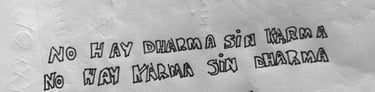 NO HAY DHARMA SiN KARMA
NO HAY KARMA SiN DHARMA